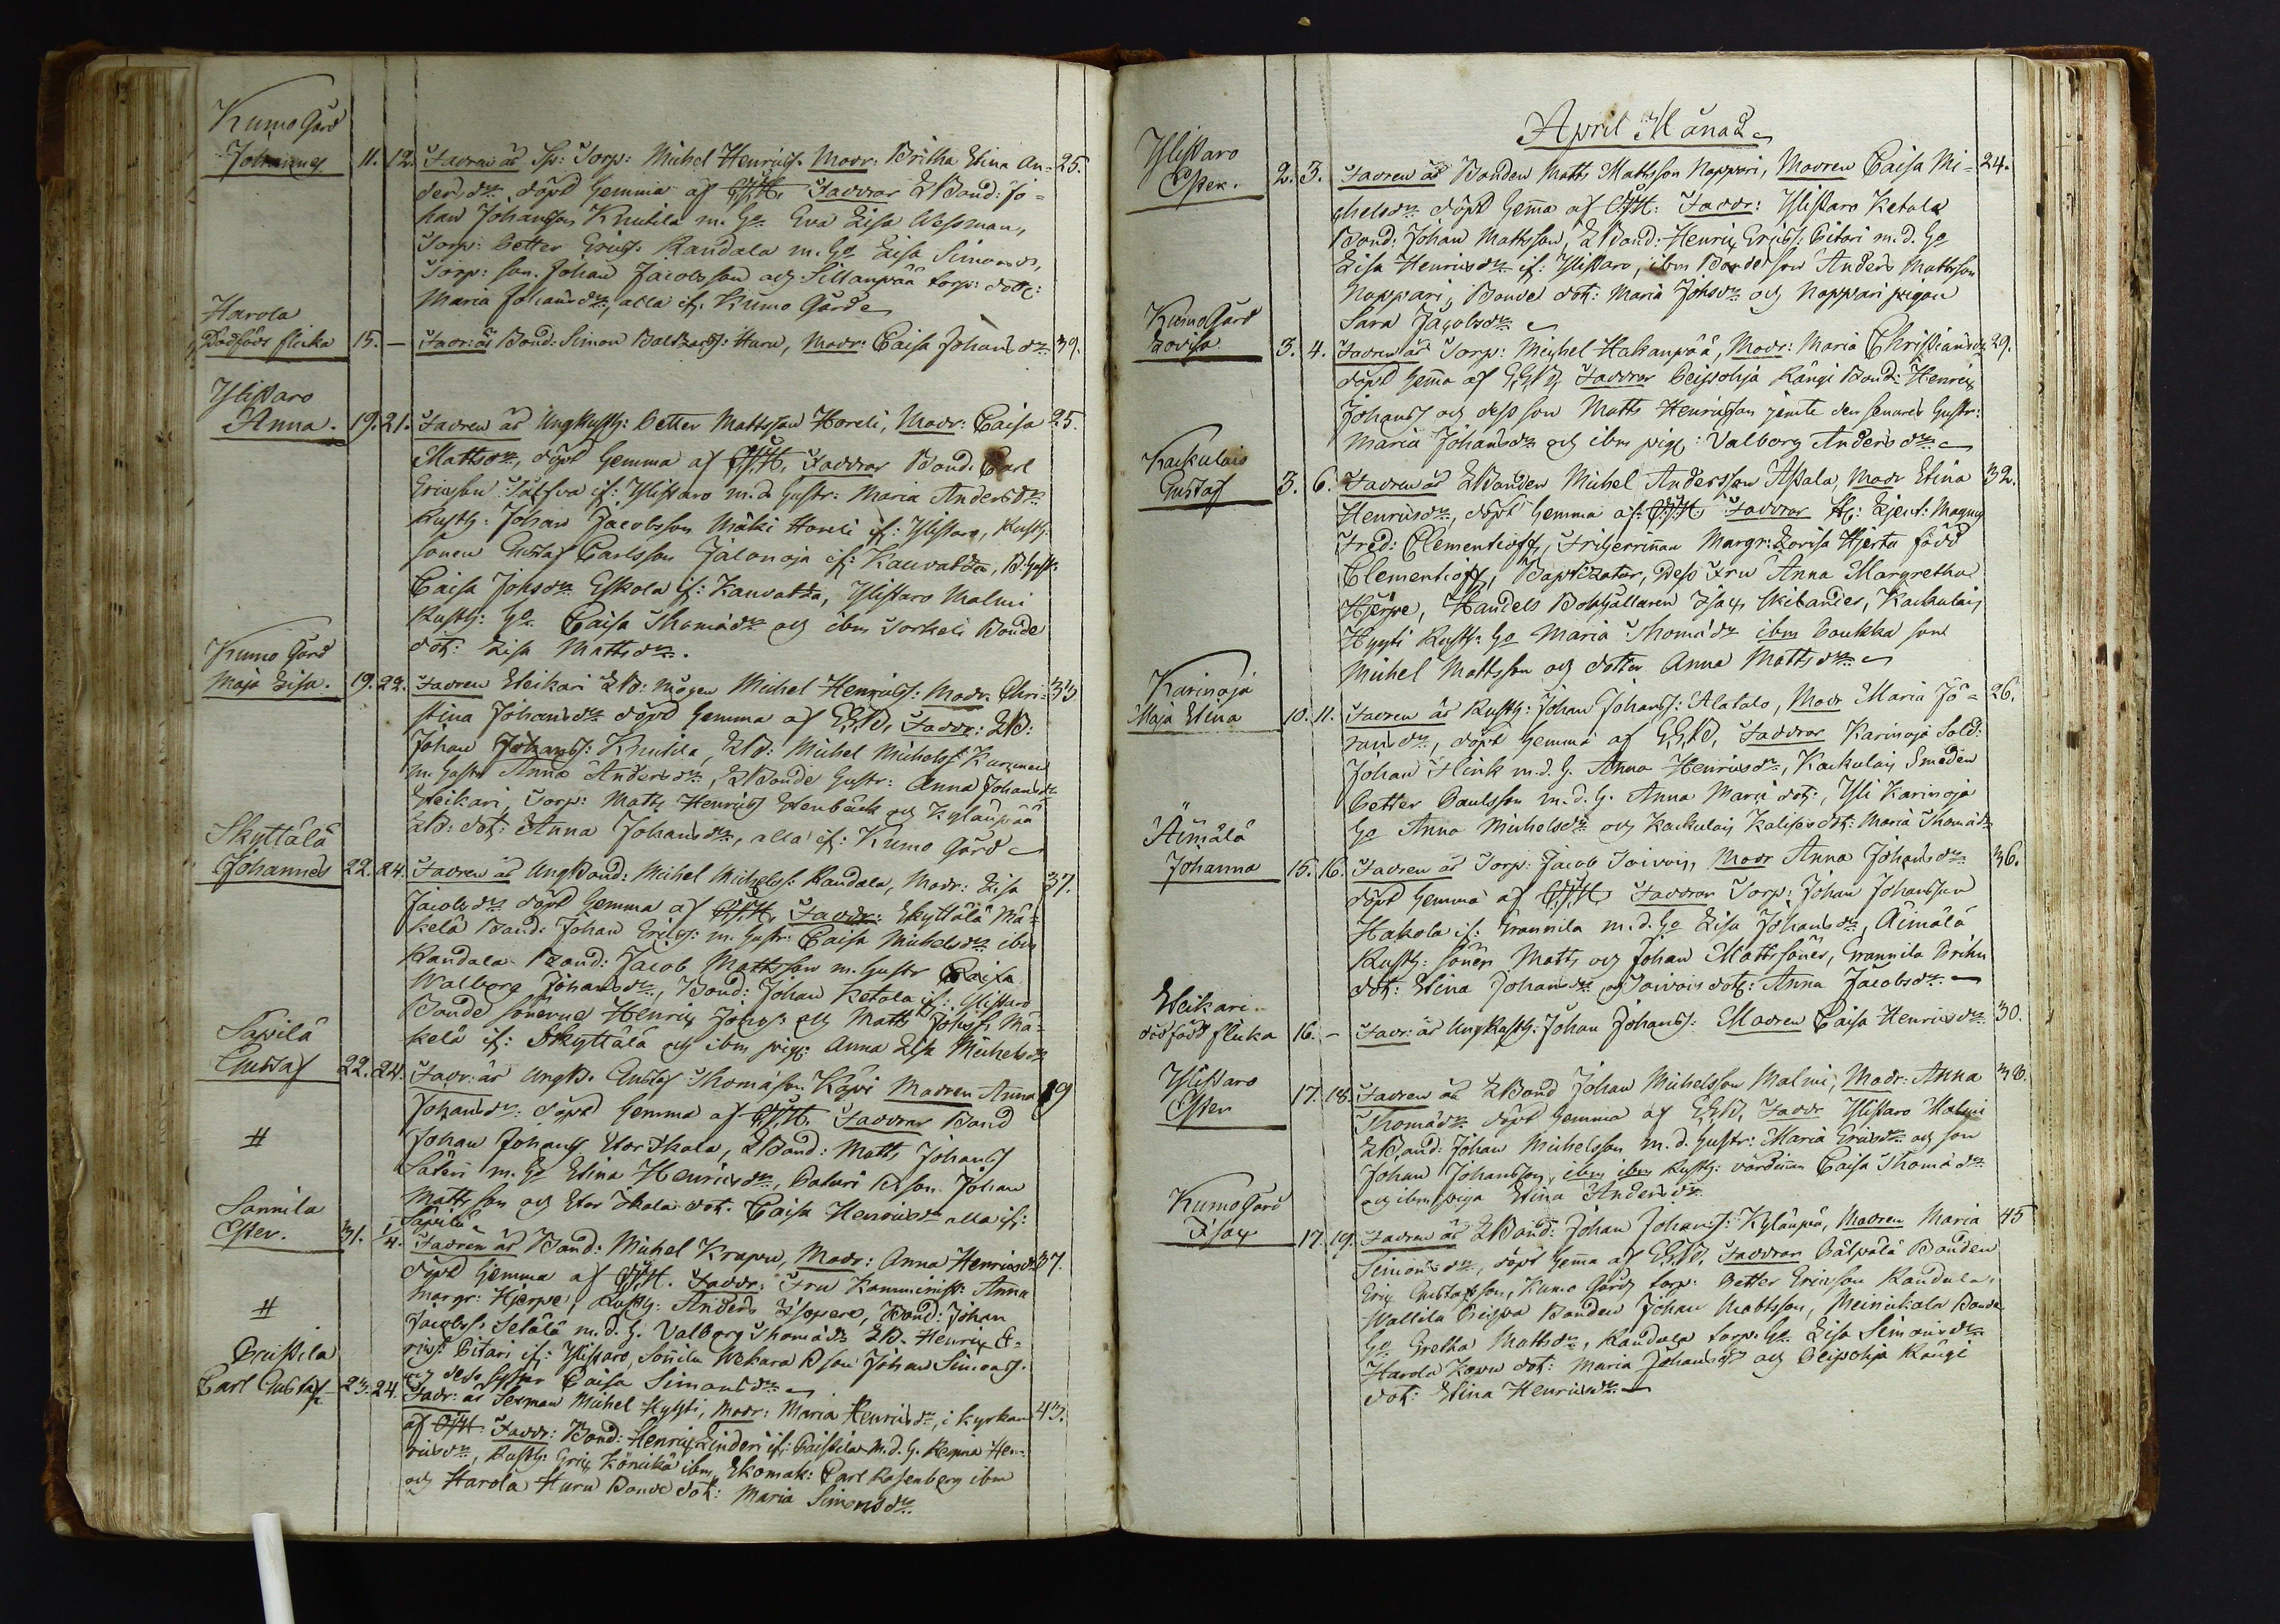 Kumo Gård
Johannes 11. 12. Fadren är Sp: Torp: Michel Henricss. Modr: Britha Stina An- 25.
dersdr. döpt hemma af Faddrar LBond: Jo-
han Johansson Knutila m. Ho Eva Lisa Wessman,
Torp: Petter Ericss: Randala m. Ho Lisa Simonsdr,
Torp: son. Johan Jacobsson och Sillanpää torp: dott:
Maria Johansdr, alla if. Kumo Gård
Harola
Dödfödt flicka 15. — Fadr: är Bond: Simon Baltzarss: Huru, Modr: Caisa Johansdr. 39.
Ylistaro
Anna. 19. 21. Fadren är UngRusth: Petter Mattsson Horeli, Modr: Caisa 25.
Mattsdr, döpt hemma af Faddrar Bond: Carl
Ericson if: Ylistaro m. d. Hustr: Maria Andersdr
Rusth: Johan Jacobsson Mäki Horeli if: Ylistaro, Rusth:
sonen Gustaf Carlsson Jalonoja if: Kauvatza, B. Hustr:
Caisa Johsdr Eskola if: Kauvatza, Ylistaro Malmi
Rusth: Ho Caisa Thomædr och ibm Torkeli Bonde
dot: Lisa Mattsdr.
Kumo Gård
Maja Lisa. 19. 22. Fadren Steikari LB: mågen Michel Henricss: Modr. Chri- 33
stina Johansdr döpt hemma af Faddr: LB:
Johan Johanss: Knutila, LB: Michel Michelss: Karimen
m. Hustr Anna Andersdr, LBonde Hustr: Anna Johansdr
Steikari, Torp: Matts Henricss Stenbäck och Kylänpää
LB: dot: Anna Johansdr, alla if: Kumo Gård
Skyttälä
Johannes 22. 24. Fadren är UngBond: Michel Michelss: Randala, Modr: Lisa 37.
Jacobsdr döpt hemma af Faddr: Skyttälä Mä-
kelä Bond: Johan Ericss: m. Hustr: Caisa Michelsdr ibm
Randala Bond: Jacob Mattsson m. Hustr Caisa
Walborg Johansdr, Bond: Johan Ketola if: Ylistaro
Bonde sönerne Henric Johss: och Matts Johss: Mä-
kelä if: Skyttälä och ibm pig: Anna Lisa Michelsdr
Säpilä
Gustaf 22. 24. Fadr: är UngB. Gustaf Thomæson Käpi Modren Anna 19
Johansdr: döpt hemma af Faddrar Bond
#
Johan Johanss Stor Skala, LBond: Matts Johanss
Säteri m. Ho Stina Henricsdr, Paturi B son. Johan
Mattsson och Stor Skala dot. Caisa Henricsdr alla if:
Säpilä
Sonnila
Ester. 31. 1/4. Fadren är Bond: Michel Krapu, Modr: Anna Henricsdr 37.
döpt hemma af Faddr: Fru Komminist: Anna
Margr: Hjerpe, Rusth: Anders Isopere, Bond: Johan
#
Jacobss. Setälä m. d. H. Valborg Thomædr LB. Henric E-
ricss: Pitari if: Ylistaro, Sonnila Wekara B son Johan Simonss.
och dess syster Caisa Simonsdr
Praistila
Carl Gustaf 23. 24. Fadr: är Sexman Michel Hyhti, Modr: Maria Henricsdr, i kyrkan 43.
af Faddr: Bond: Henric Linderi if: Paistila m. d. H. Regina Hen-
ricsdr, Rusth: Eric Könickä ibm, Skomak: Carl Rosenberg ibm
och Harola Huru Bonde dot: Maria Simonsdr
April Månad
Ylistaro
Ester. 2. 3. Fadren är Bonden Matts Mattsson Noppari, Modren Caisa Mi- 24.
chelsdr döpt hemma af Faddr: Ylistaro Ketola
Bond: Johan Mattsson, LBond: Henric Ericss: Pitari m. d. Ho
Lisa Henricsdr if: Ylistaro, ibm Bonde son Anders Mattsson
Noppari, Bonde dot: Maria Johsdr och Noppari pigan
Sara Jacobsdr
Kumo Gård
Lovisa 3. 4. Fadren är Torp: Michel Hakanpää, Modr: Maria Christiansdr 29.
döpt hemma af Faddrar Peipohja Rängi Bond: Henric
Johanss och dess son Matts Henricsson jemte den senares Hustr:
Maria Johansdr och ibm pig: Valborg Andersdr
Kackulais
Gustaf 3. 6. Fadren är LBonden Michel Andersson Alstala, Modr Stina 32.
Henricsdr, döpt hemma af: Faddrar H: Lieut: Magnus
Fred: Clementeoff, Friherrinnan Margr: Lovisa Hjerta född
Clementeoff, Baptizator, Dess Fru Anna Margretha
Hjerpe, Handels Bokhållaren Isac Skilander, Kackulais
Hyyti Rusth: Ho Maria Thomædr ibm Poukka son
Michel Mattsson och dotter Anna Mattsdr
Karinoja
Maja Stina 10. 11. Fadren är Rusth: Johan Johanss: Alatalo, Modr Maria Jö- 26.
ransdr, döpt hemma af Faddrar Karinoja Sold:
Johan Flink m. d. H. Anna Henricsdr, Kackulais Smeden
Petter Paulsson m. d. H. Anna Mariæ dot:, Yli Karinoja
Ho Anna Michelsdr och Kackulais Kalifas dot: Maria Thomædr
Äimälä
Johanna 15. 16. Fadren är Torp: Jacob Toivoin, Modr Anna Johansdr 36.
döpt hemma af Faddrar Torp: Johan Johansson
Hakola if: Grannila m. d. Ho Lisa Johansdr, Äimälä
Rusth: söner Matts och Johan Mattssöner, Grannila Prihu
dot: Stina Johansdr, och Toivois dot: Anna Jacobsdr.
Steikari
dödfödd flicka 16. — Fadr: är UngRusth: Johan Johanss: Modren Caisa Henricsdr 30.
Ylistaro
Ester 17. 18. Fadren är LBond Johan Michelsson Malmi, Modr: Anna 38.
Thomædr döpt hemma af Faddr Ylistaro Malmi
LBond: Johan Michelsson m. d. Hustr: Maria Ericsdr och son
Johan Johansson, ibm ibm Rusth: värdinnan Caisa Thomædr
och ibm piga Stina Andersdr
Kumo Gård
Isac 17. 19. Fadren är LBond: Johan Johanss: Kylänpä, Modren Maria 45
Simonsdr, döpt hemma af Faddrar Pälpälä Bonden
Eric Gustafsson, Kumo Gårds torp: Petter Ericson Randala,
Wallila Peippo Bonden Johan Mattsson, Meinikala Bonde
Ho Gretha Mattsdr, Randala torp: Ho Lisa Simonsdr
Harola Kovu dot: Maria Johansdr och Peipohja Rängi
dot: Stina Henricsdr